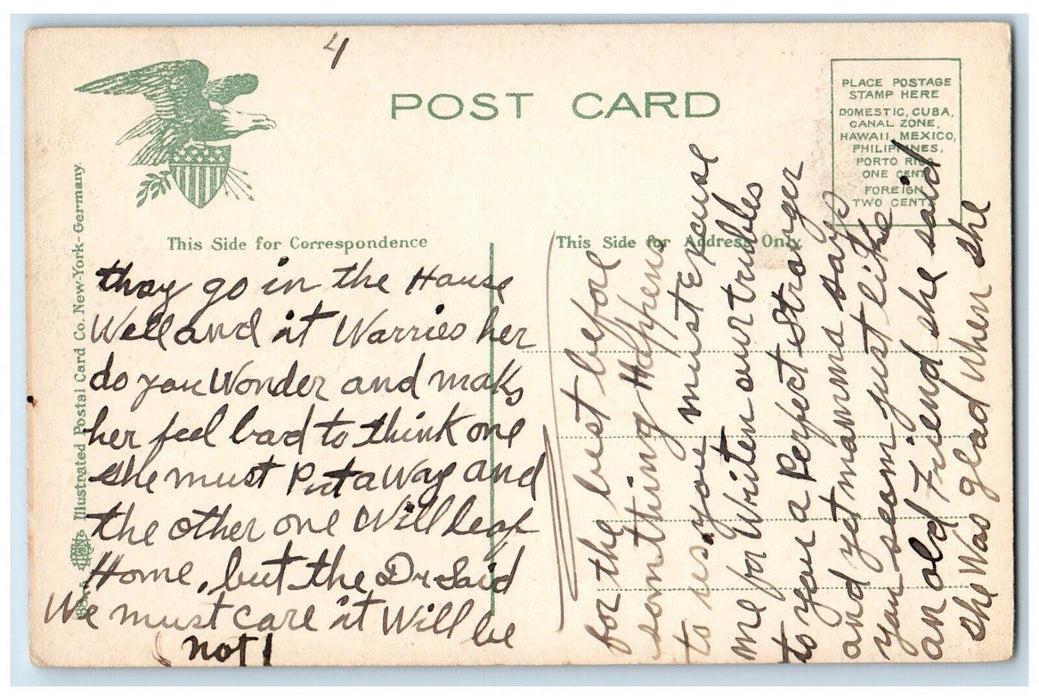 4
POST CARD
PLACE POSTAGE
STAMP HERE
DOMESTIC, CUBA,
CANAL ZONE,
HAWAII, MEXICO,
PHILIPPINES,
PORTO RICO
ONE CENT
FOREIGN
TWO CENTS
Illustrated Postal Card Co. New-York - Germany.
This Side for Correspondence
This Side for Address Only
thay go in the House
Well and it Warries her
do you Wonder and maks
her feel bard to think one
she must Put a Way and
the other one Will leaf
Home, but the Dr Said
We must care it Will be
not!
for the best before
somthing Happens
to us. you must Excuse
me for Writen our trubles
to you a Perfect Stranger
and yet mamma says
you seem just like
an old Friend she said
she Was glad when she